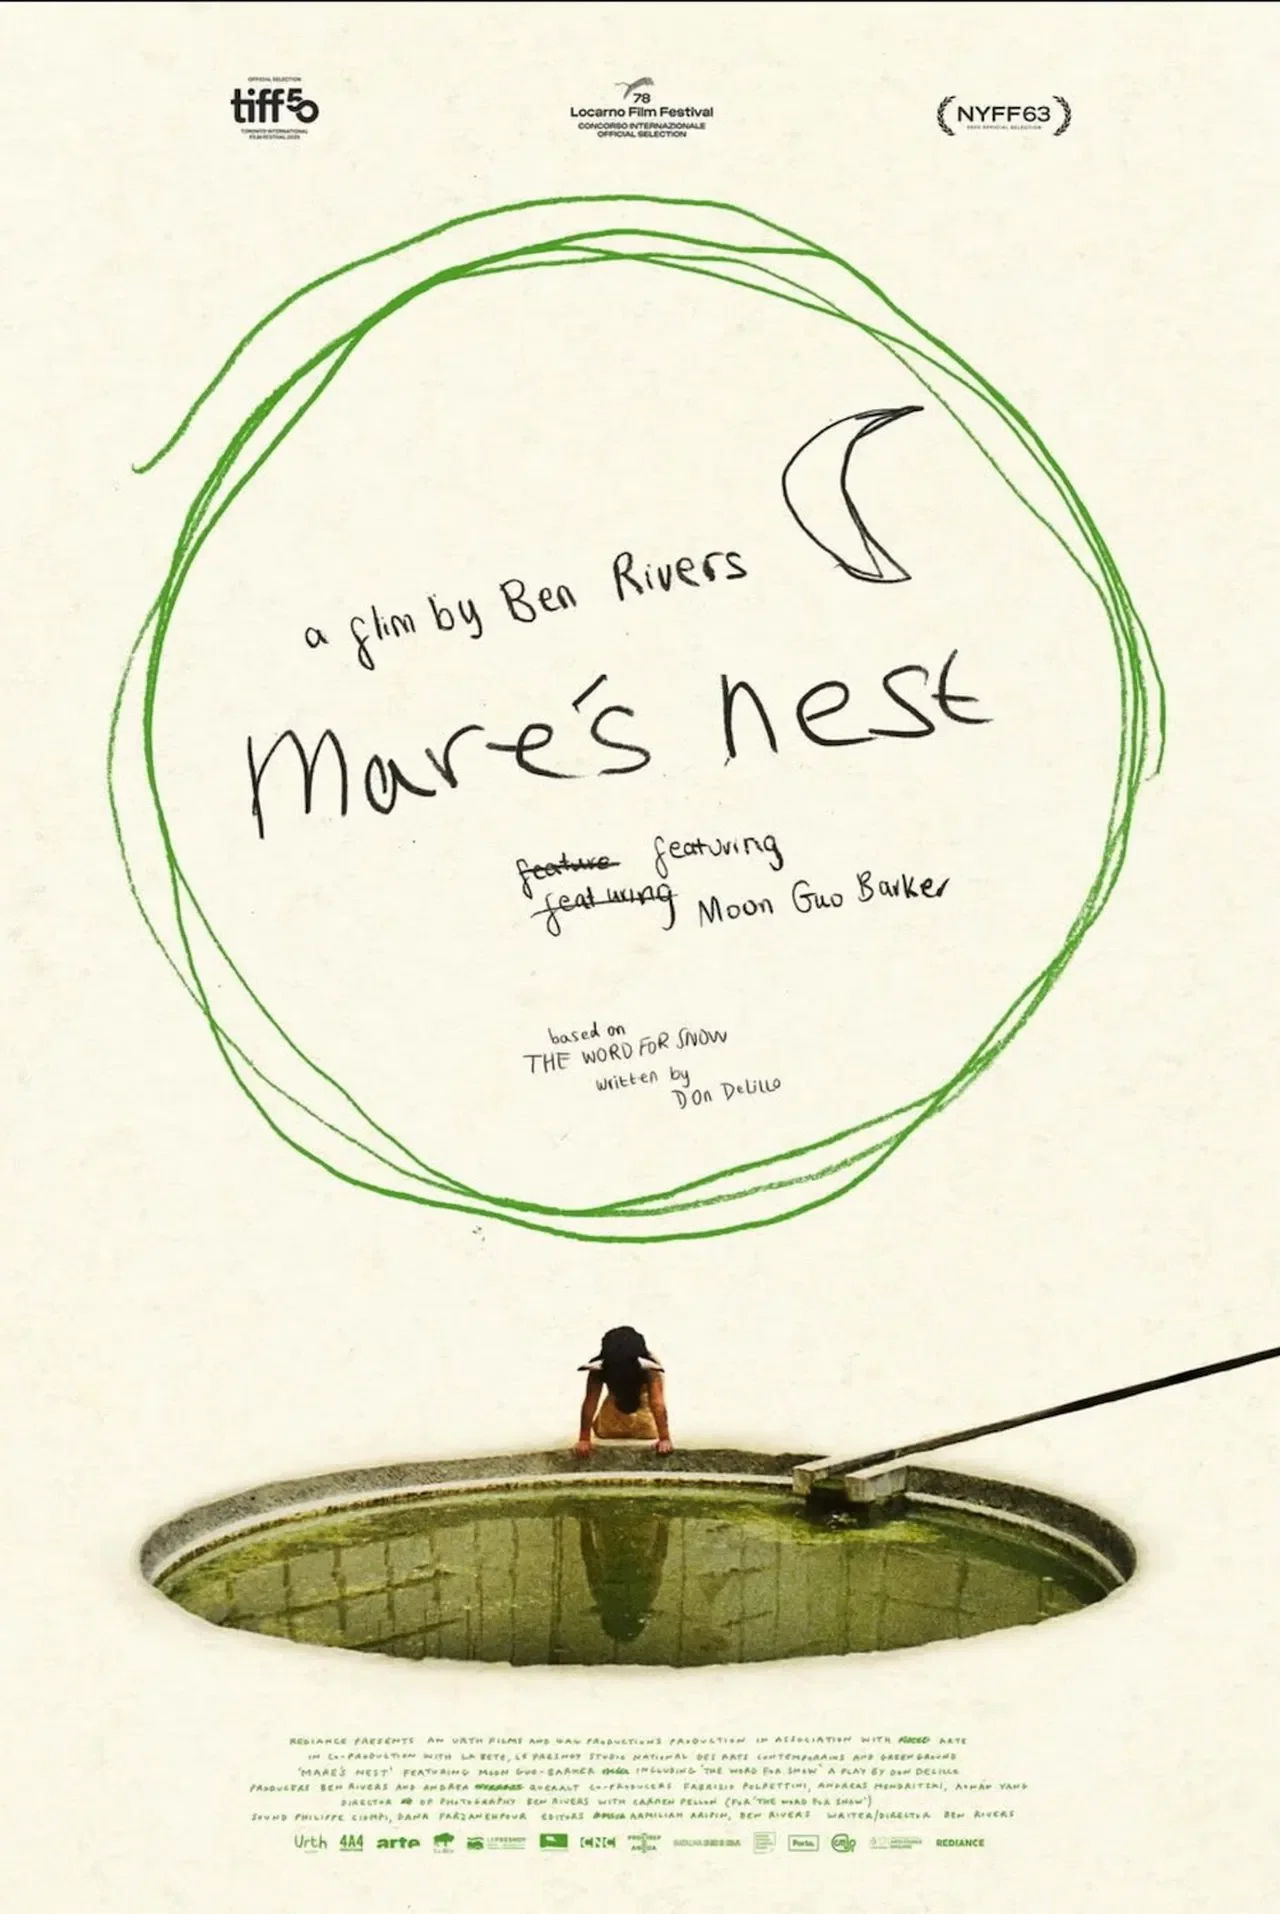 OFFICIAL SELECTION
tiff50
TORONTO INTERNATIONAL
FILM FESTIVAL 2025
78
Locarno Film Festival
CONCORSO INTERNAZIONALE
OFFICIAL SELECTION
NYFF63
2025 OFFICIAL SELECTION
a flim by Ben Rivers
Mare's nest
feature featuring
featuring Moon Guo Barker
based on
THE WORD FOR SNOW
written by
Don DeLillo
REDIANCE PRESENTS AN URTH FILMS AND PRODUCTIONS PRODUCTION IN ASSOCIATION WITH ARTE
IN CO-PRODUCTION WITH LA BETE, LE FRESNOY STUDIO NATIONAL DES ARTS CONTEMPORAINS AND GREENGROUND
'MARE'S NEST' FEATURING MOON GUO-BARKER INCLUDING 'THE WORD FOR SNOW' A PLAY BY DON DELILLO
PRODUCERS BEN RIVERS AND ANDREA QUERALT CO-PRODUCERS FABRIZIO POLPETTINI, ANDREAS MENDRITZKI, AONAN YANG
DIRECTOR OF PHOTOGRAPHY BEN RIVERS WITH CARMEN PELLON (FOR 'THE WORD FOR SNOW')
SOUND PHILIPPE CIOMPI, DANA FARZANEHPOUR EDITORS ARMILIAH ARIPIN, BEN RIVERS WRITER/DIRECTOR BEN RIVERS
Urth 4A4 arte LE FRESNOY CNC PROCIREP ANGOA Porto. REDIANCE